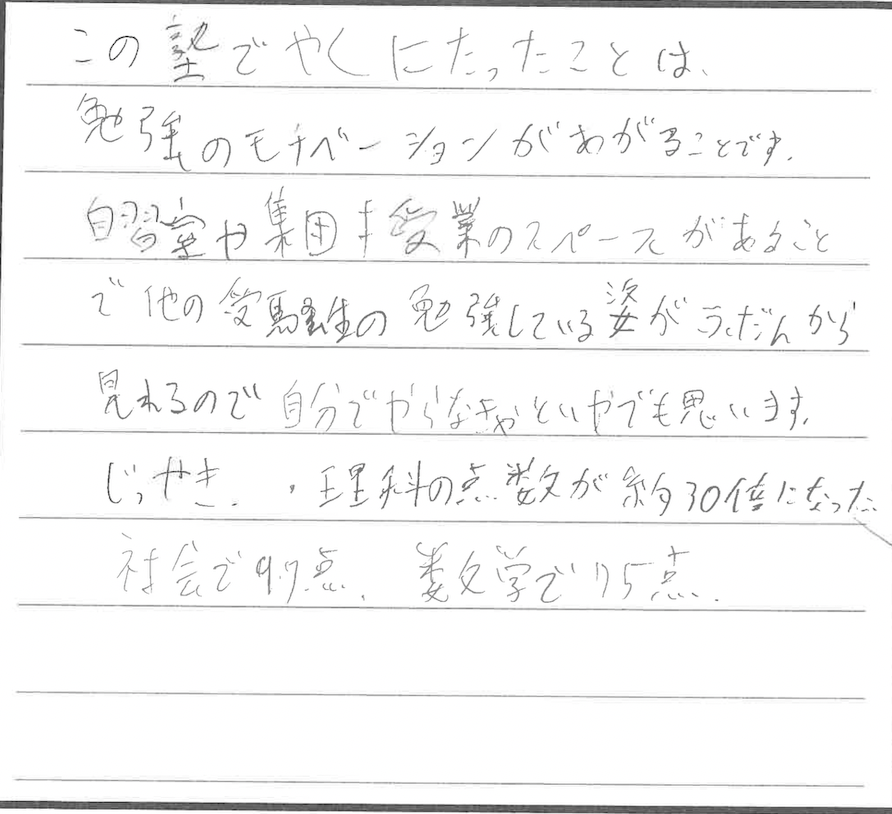 この塾でやくにたったことは、
勉強のモチベーションがあがることです。
自習室や集団授業のスペースがあること
で他の受験生の勉強している姿がふだんから
見れるので自分でやらなきゃといやでも思います。
じっせき。・理科の点数が約30倍になった
社会で97点、数学で75点。